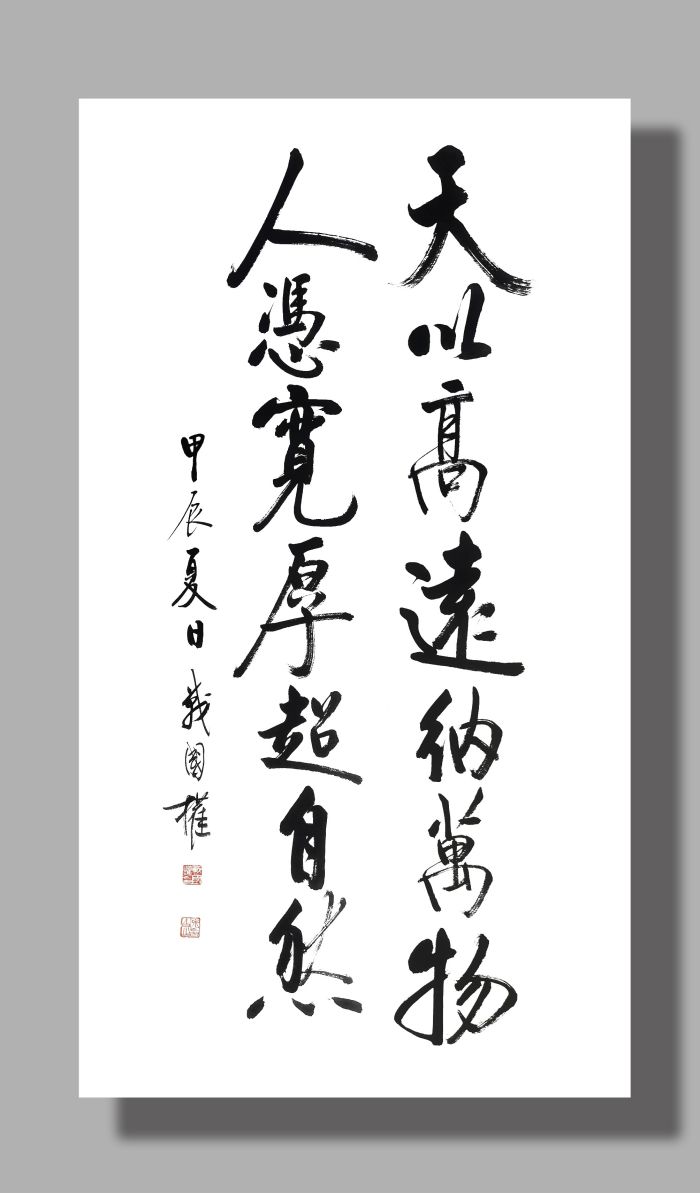 天以高遠納萬物
人憑寬厚超自然
甲辰夏日戴國權